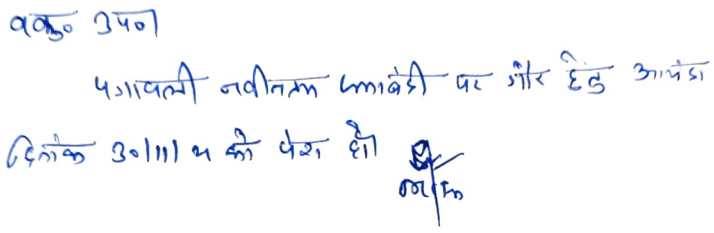 वकु० उप०।
पत्रावली नवीनतम जमाबंदी पर गौर हेतु आयंदा
दिनांक 30/11/ को पेश हो।